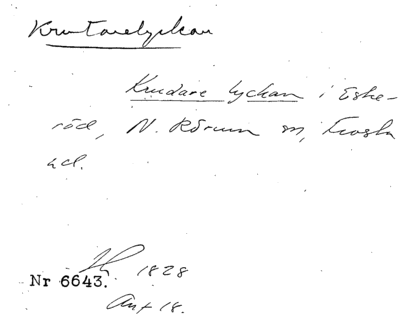 Krutarelyckan
Krudare lyckan i Eske-
röd, N. Rörum sn, Frosta
hd.
Lh 1828
Nr 6643.
Ant 18.